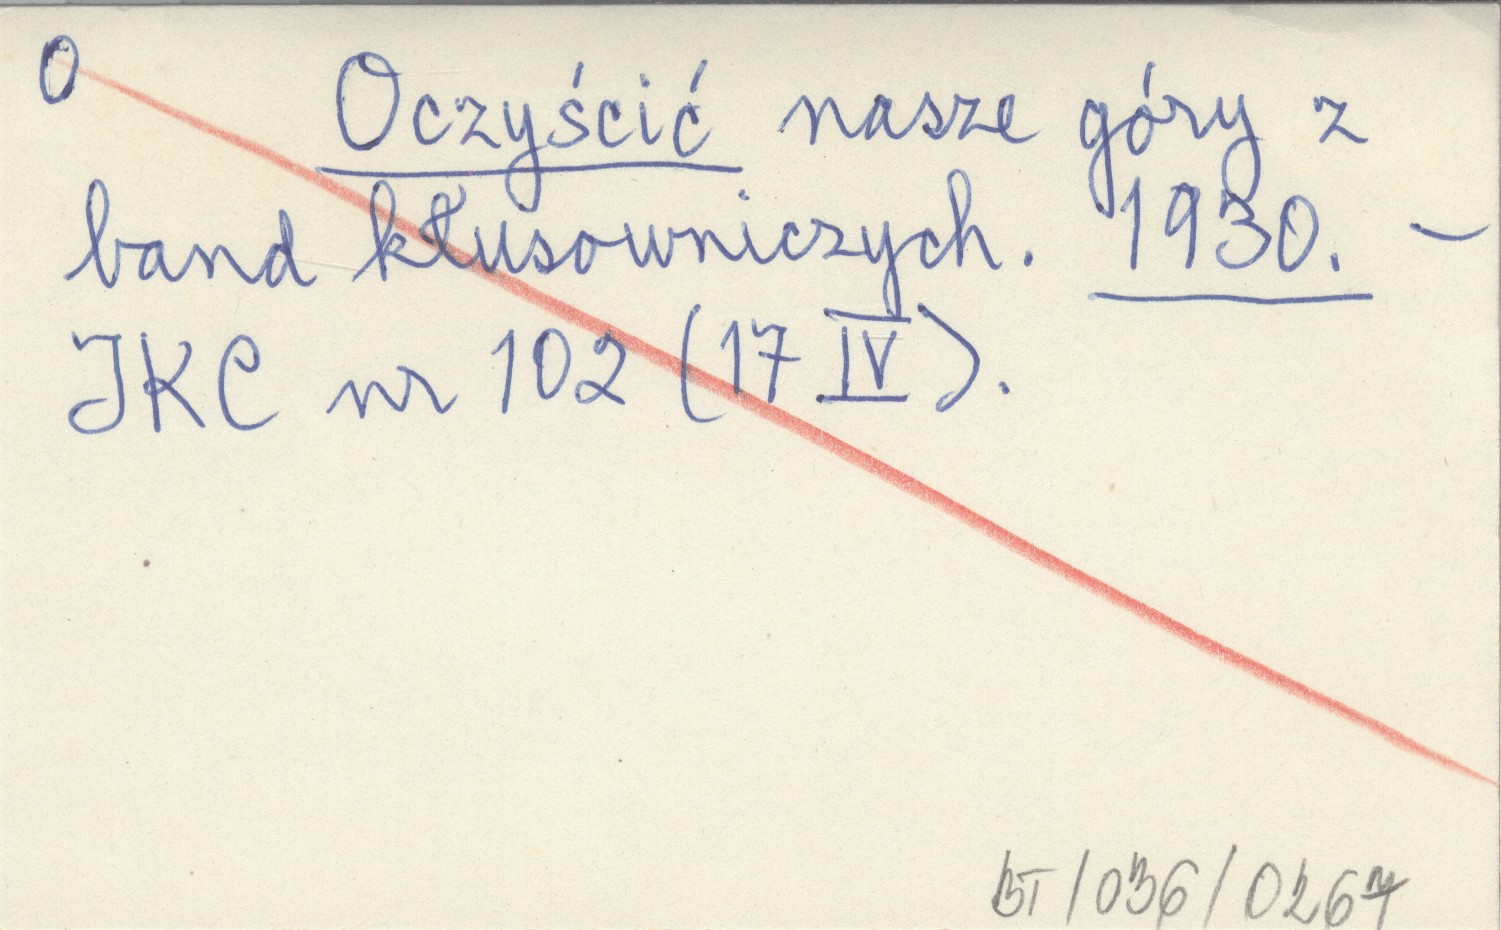 O
Oczyścić nasze góry z
band kłusowniczych. 1930. –
JKC nr 102 (17 IV).
BT/036/0267